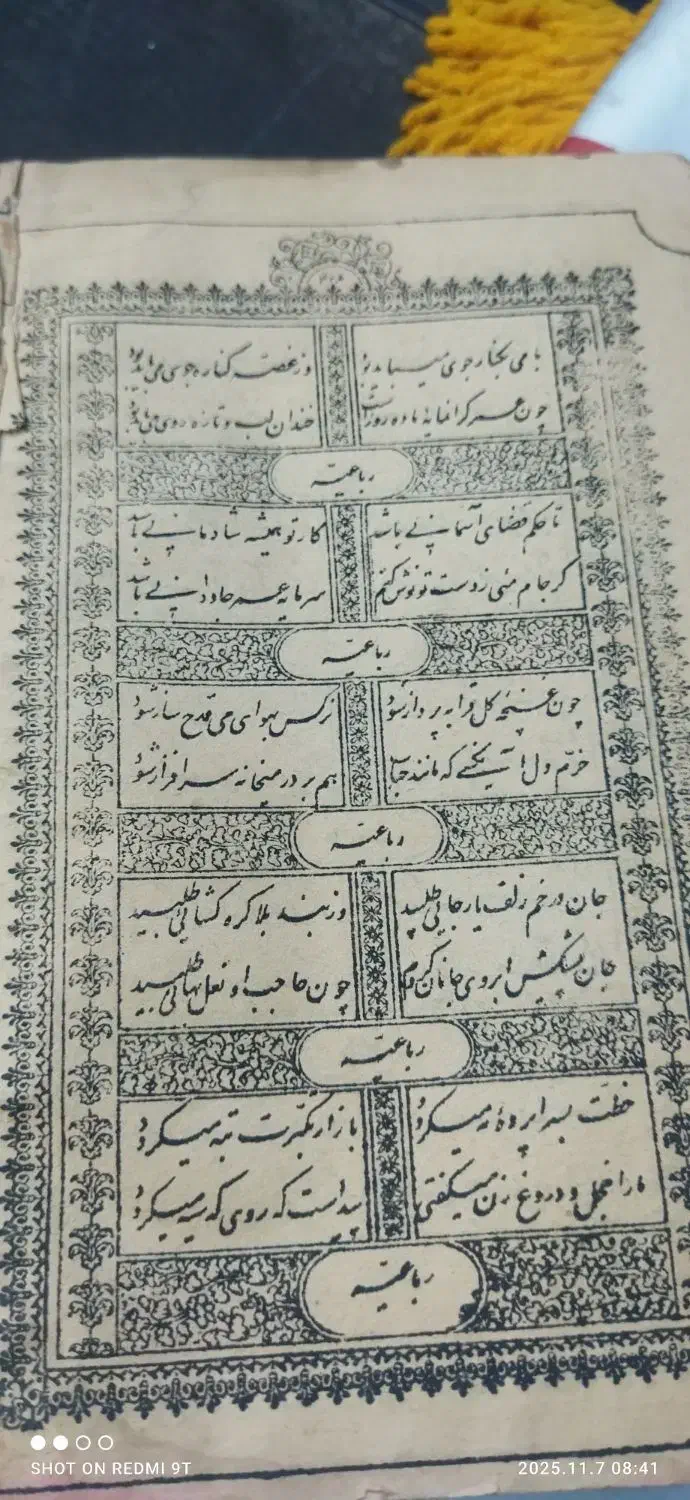 با می بکنار جوی میباید بود وز غصّه کناره جوی می باید بود
چون عمر کرانمایهٔ ما ده روزاست خندان لب و تازه روی می باید بود
رباعیّه
تا حکم قضای آسمانی باشد کار تو همیشه شادمانی باشد
کر جام مئی زدست تو نوش کنم سرمایه عمر جاودانی باشد
رباعیّه
چون غنچه کل قرابه پرداز شود نرکس بهوای می قدح ساز شود
خرّم دل آنکسی که مانند حباب هم بر در میخانه سرافراز شود
رباعیّه
جان در خم زلف یار جائی طلبید وز بند بلا کره کشائی طلبید
جان پیشکش ابروی جانان کردم چون حاجب او نعل بهائی طلبید
رباعیّه
خطّت بسراپرده مه میکرد بازار تکبّرت تبه میکرد
ما را خجل و دروغ زن میکفتی پیداست که روی که سیه میکرد
رباعیّه
SHOT ON REDMI 9T 2025.11.7 08:41